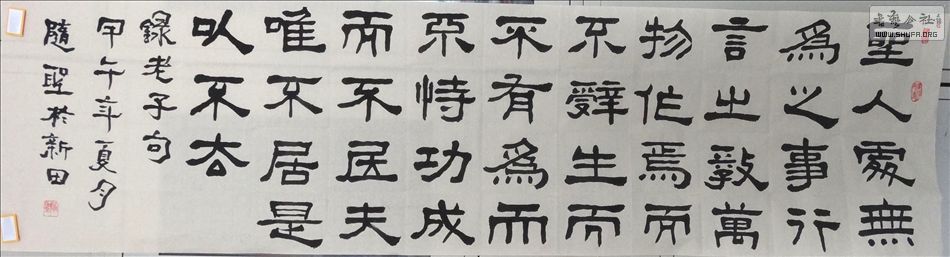 聖人處無
為之事行
言之教萬
物作焉而
不辭生而
不有為而
不恃功成
而不居夫
唯不居是
以不去
錄老子句
甲午年夏月
隨聖於新田
書藝公社
WWW.SHUFA.ORG